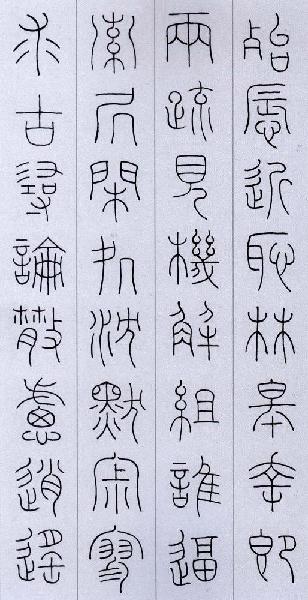 殆辱近恥林皋幸即
兩疏見機解組誰逼
索居閑處沈默寂寥
求古尋論散慮逍遙